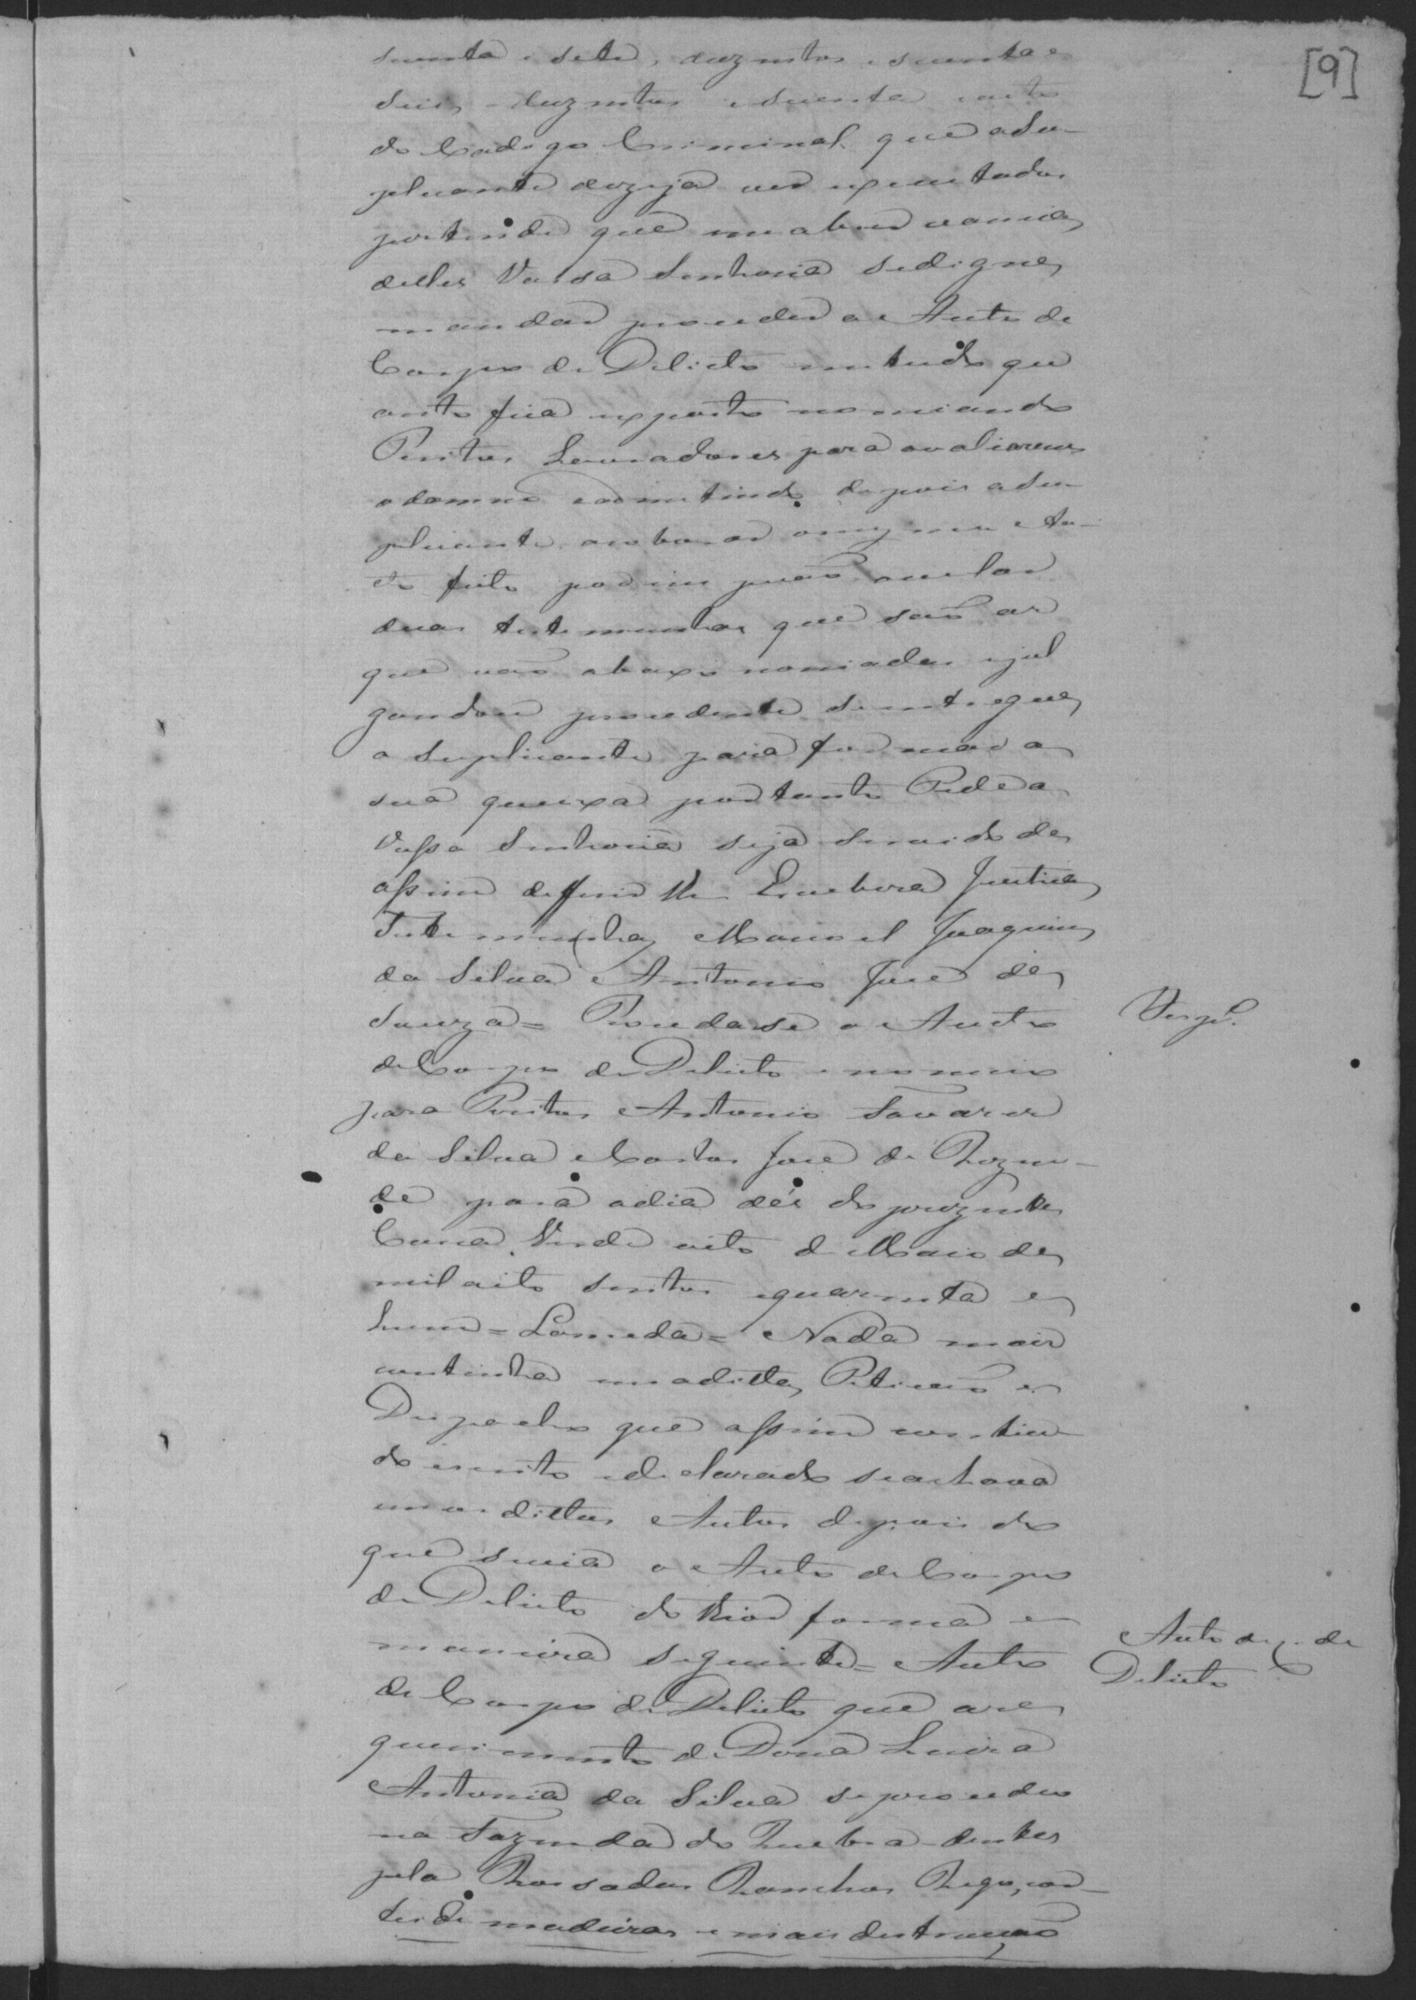 [9]
senta e sete, duzentos e senta e
seis, duzentos e secenta e oito
do Codego Criminal que a Su-
plicante dezeja ver executadas
pertende que em observancia
delles Vossa Senhoria sedigne
mandar proceder a Auto de
Corpo de Delicto em tudo qu
anto fica exposto nomiando
Peritos Louvadores para avaliarem
o damno e admetindo depois a Su-
plicante
to feito
duas testemunhas que saõ as
que vaõ abaxo nomiadas e jul
gandose procedente se entregue
a Suplicante para formar a
sua queixa portanto Pede a
Vossa Senhoria seja servido de
assim defferir lhe E recebera Justica
Testemunhas Manoel Joaquim
da Silva Antonio Jose de
Souza = Procedase a Auto
de Corpo de Delicto e nomeio
para Peritos Antonio Tavares
da Silva e Carlos Jose de Rezen-
de para odia dés do prezente
Canna Verde oito de Maio de
mil oito sentos e quarenta e
hum = Lameda = Nada mais
continha em adita Peticaõ e
Despacho que assim conteu-
do escrito e declarado se achava
em os dittos Autos depois do
que seuia o Auto de Corpo
de Delicto do theor forma e
maneira seguinte = Auto
de Corpo de Delicto que a re
querimento de Dona Luiza
Antonia da Silva se procedeo
na Fazenda do Quebra-dentes
pela Rossadas Ranchos Rego, cor-
tes de madeiras e mais destruicaõ
Despº.
Auto de C. de
Delicto